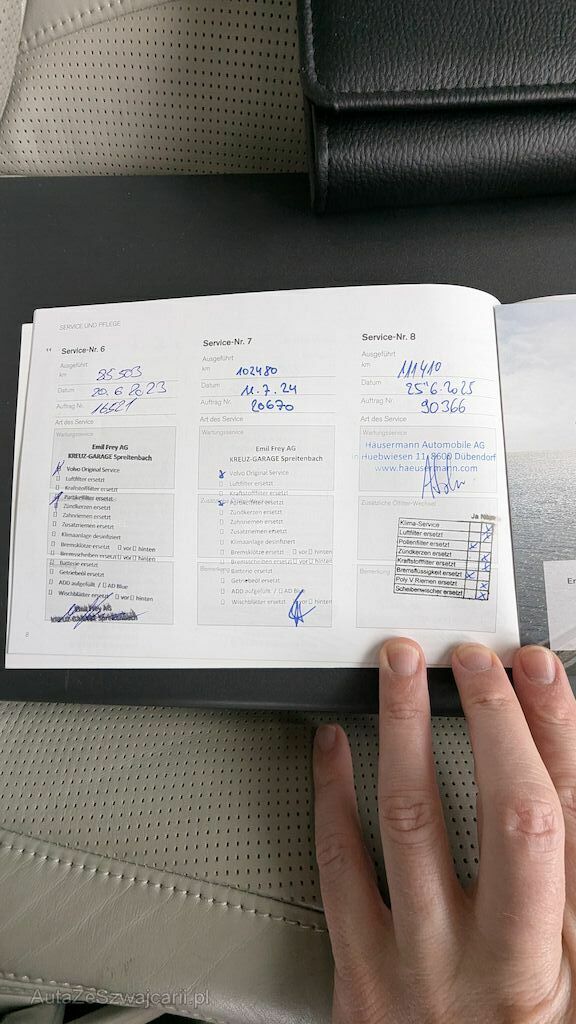 SERVICE UND PFLEGE
Service-Nr. 6
Ausgeführt
km 85 503
Datum 20.6.2023
Auftrag Nr. 16521
Art des Service
Wartungsservice
Emil Frey AG
KREUZ-GARAGE Spreitenbach
Volvo Original Service
Luftfilter ersetzt
Kraftstofffilter ersetzt
Partikelfilter ersetzt
Zündkerzen ersetzt
Zahnriemen ersetzt
Zusatzriemen ersetzt
Klimaanlage desinfiziert
Bremsklötze ersetzt vor hinten
Bremsscheiben ersetzt vor hinten
Batterie ersetzt
Getriebeöl ersetzt
ADD aufgefüllt / AD Blue
Wischblätter ersetzt vor hinten
Emil Frey AG
KREUZ-GARAGE Spreitenbach
8
Service-Nr. 7
Ausgeführt
km 102480
Datum 11.7.24
Auftrag Nr. 20670
Art des Service
Wartungsservice
Emil Frey AG
KREUZ-GARAGE Spreitenbach
Volvo Original Service
Luftfilter ersetzt
Kraftstofffilter ersetzt
Partikelfilter ersetzt
Zündkerzen ersetzt
Zahnriemen ersetzt
Zusatzriemen ersetzt
Klimaanlage desinfiziert
Bremsklötze ersetzt vor hinten
Bremsscheiben ersetzt vor hinten
Batterie ersetzt
Getriebeöl ersetzt
ADD aufgefüllt / AD Blue
Wischblätter ersetzt vor hinten
Service-Nr. 8
Ausgeführt
km 111410
Datum 25.6.2025
Auftrag Nr. 90366
Art des Service
Wartungsservice
Häusermann Automobile AG
In Huebwiesen 11, 8600 Dübendorf
www.haeusermann.com
Zusätzliche Ölfilter-Wechsel
Ja Nein
Klima-Service
Luftfilter ersetzt
Pollenfilter ersetzt
Zündkerzen ersetzt
Kraftstoffilter ersetzt
Bremsflüssigkeit ersetzt
Poly V Riemen ersetzt
Scheibenwischer ersetzt
Bemerkung
AutaZeSzwajcarii.pl